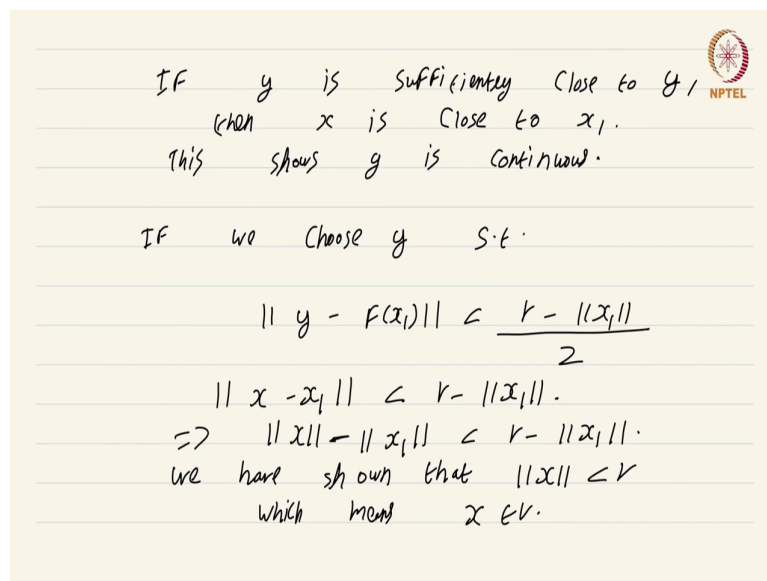 IF y is sufficiently close to y₁
NPTEL
then x is close to x₁.
This shows g is continuous.
IF we choose y s.t.
|| y - F(x₁)|| < (r - ||x₁||)/2
|| x - x₁ || < r - ||x₁||.
=> ||x|| - ||x₁|| < r - ||x₁||.
we have shown that ||x|| < r
which means x ∈ V.